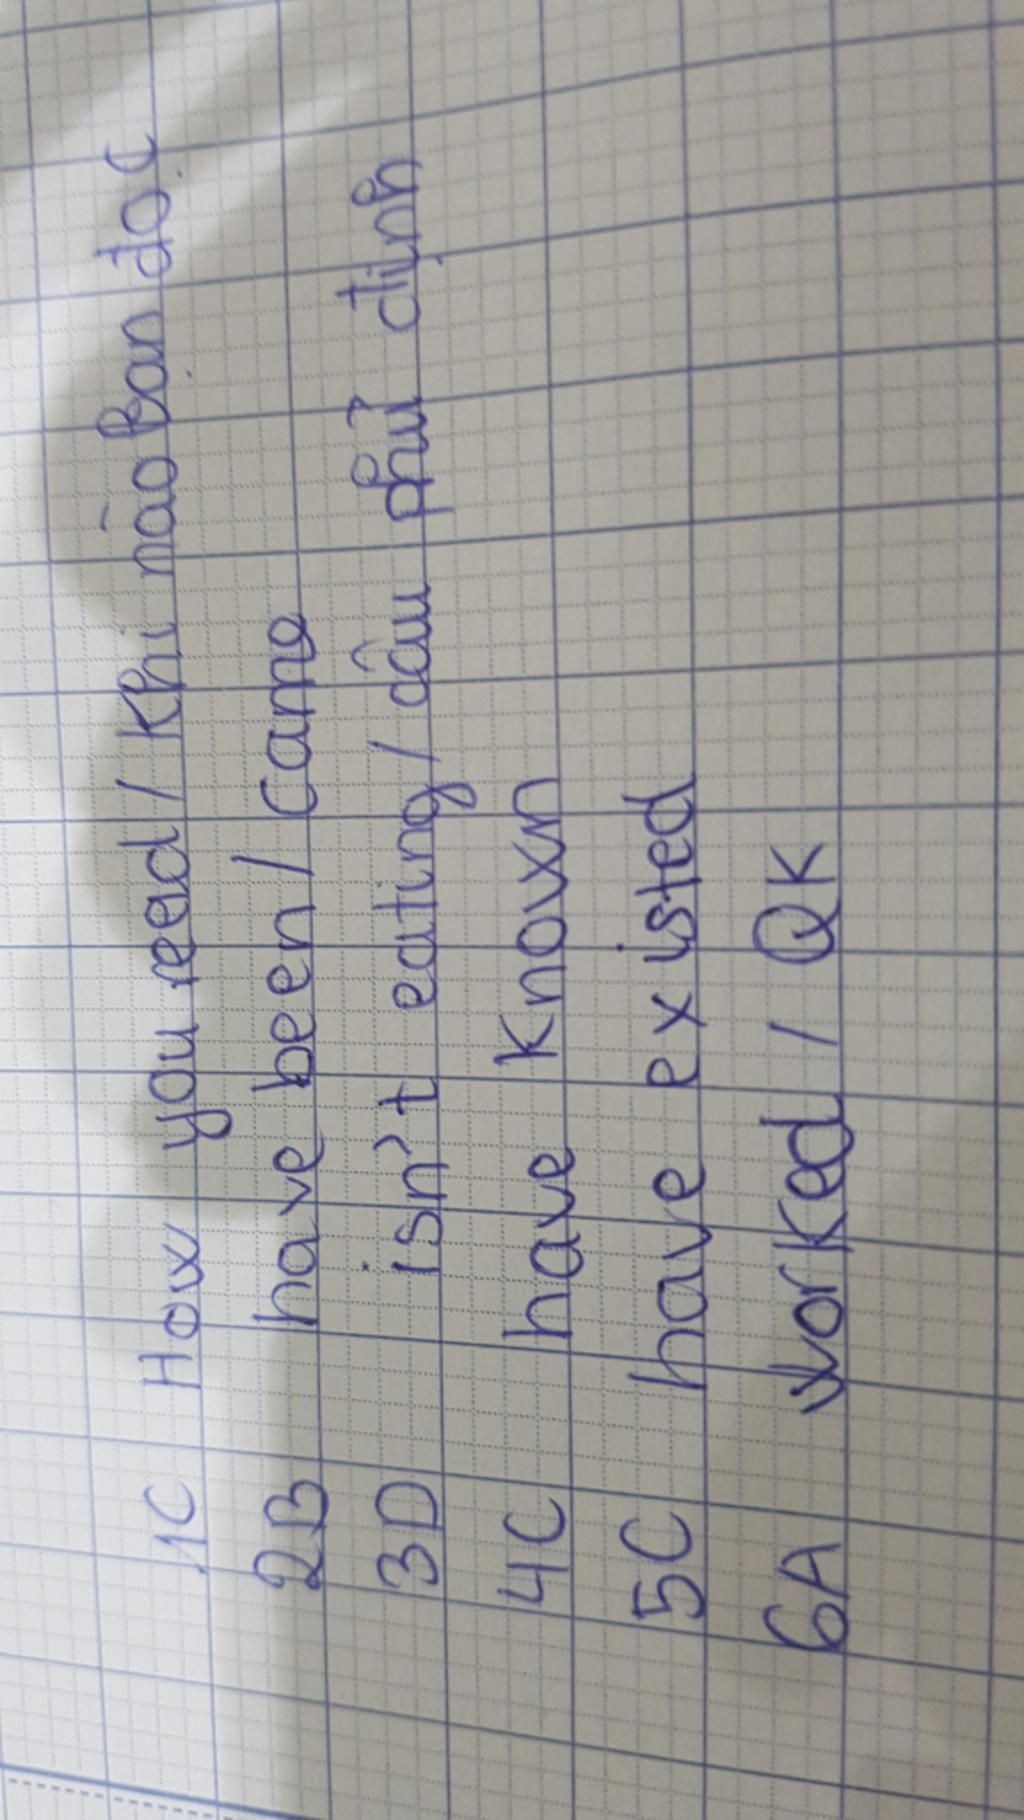 1C How you read / Khi nào bạn đọc
2B have been / came
3D isn't eating / câu phủ định
4C have known
5C have existed
6A worked / QK